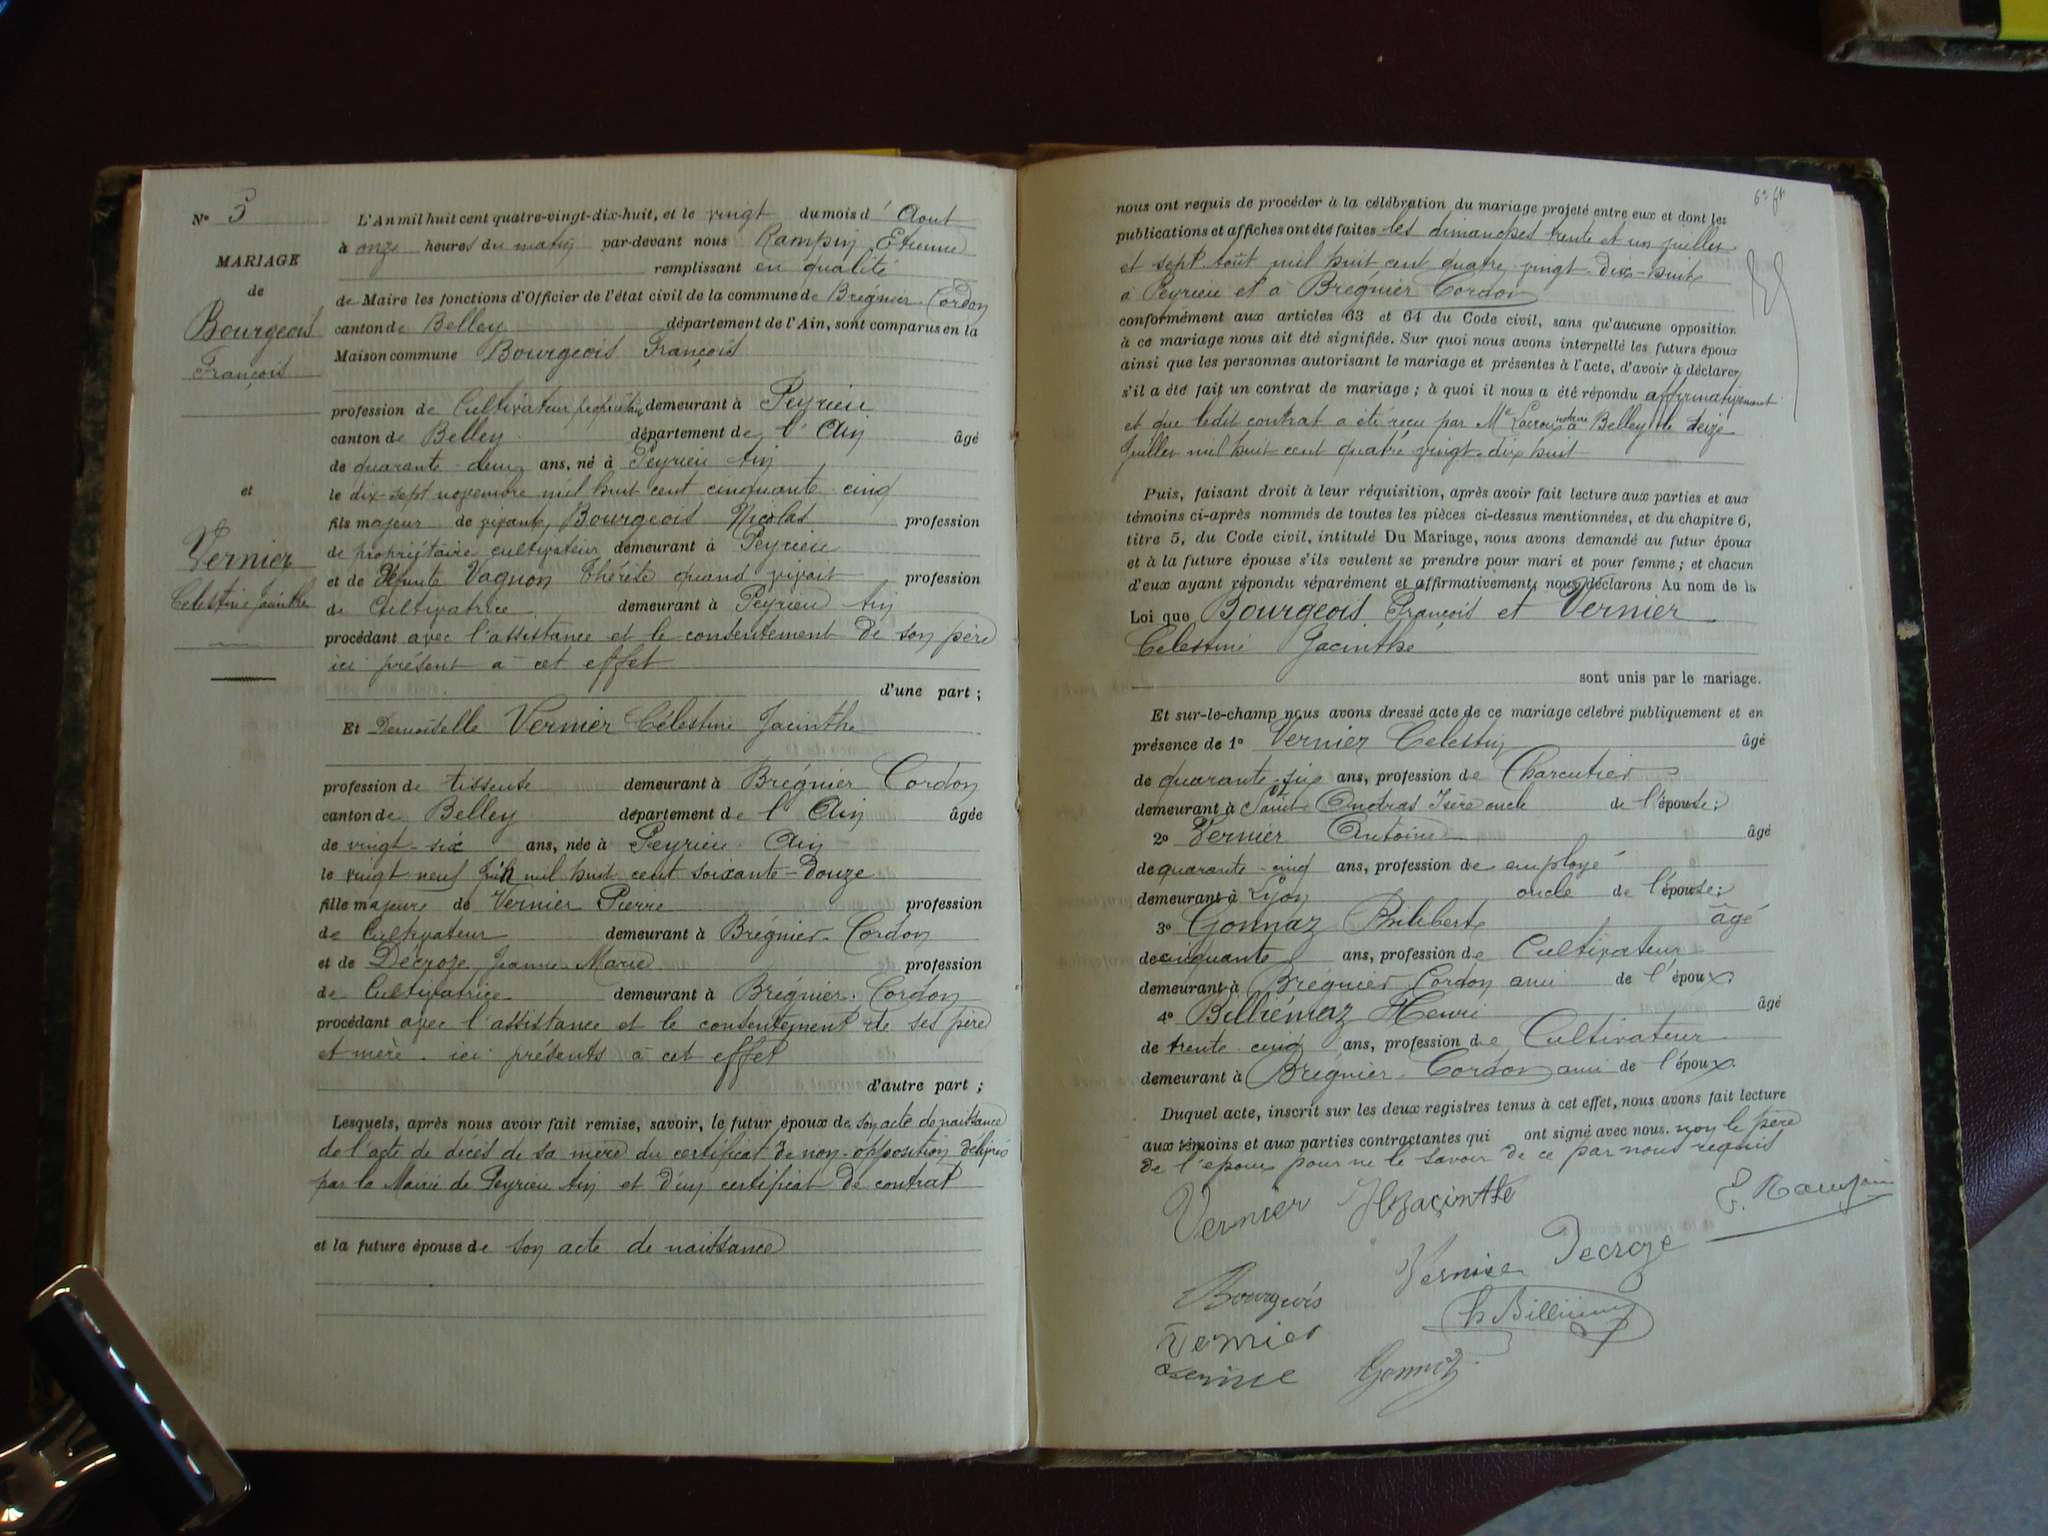 N° 3
MARIAGE
de
Bourgeois
François
et
Vernier
Célestine Jacinthe
L'An mil huit cent quatre-vingt-dix-huit, et le vingt du mois d' Aout
à onze heures du matin par-devant nous Rampin Etienne
remplissant en qualité
de Maire les fonctions d'Officier de l'état civil de la commune de Brégnier-Cordon
canton de Belley département de l'Ain, sont comparus en la
Maison commune Bourgeois François
profession de Cultivateur propriétaire demeurant à Peyrieu
canton de Belley département de l'Ain âgé
de quarante-deux ans, né à Peyrieu Ain
le dix-sept novembre mil huit cent cinquante-cinq
fils majeur de vivant Bourgeois Nicolas profession
de propriétaire cultivateur demeurant à Peyrieu
et de Vagnon Thérèse quand vivait profession
de Cultivatrice demeurant à Peyrieu Ain
procédant avec l'assistance et le consentement de son père
ici présent à cet effet
d'une part ;
Et Demoiselle Vernier Célestine Jacinthe
profession de tisseuse demeurant à Brégnier Cordon
canton de Belley département de l'Ain âgée
de vingt-six ans, née à Peyrieu Ain
le vingt neuf Juin mil huit cent soixante-Douze
fille majeure de Vernier Pierre profession
de Cultivateur demeurant à Brégnier-Cordon
et de Décroze Jeanne Marie profession
de Cultivatrice demeurant à Brégnier-Cordon
procédant avec l'assistance et le consentement de ses père
et mère ici présents à cet effet
d'autre part ;
Lesquels, après nous avoir fait remise, savoir, le futur époux de son acte de naissance
de l'acte de décès de sa mère du certificat de non-opposition délivrés
par la Mairie de Peyrieu Ain et d'un certificat de contrat
et la future épouse de son acte de naissance
nous ont requis de procéder à la célébration du mariage projeté entre eux et dont les
publications et affiches ont été faites les dimanches trente et un juillet
et sept août mil huit cent quatre-vingt-dix-huit
à Peyrieu et à Brégnier Cordon
conformément aux articles 63 et 64 du Code civil, sans qu'aucune opposition
à ce mariage nous ait été signifiée. Sur quoi nous avons interpellé les futurs époux
ainsi que les personnes autorisant le mariage et présentes à l'acte, d'avoir à déclarer
s'il a été fait un contrat de mariage ; à quoi il nous a été répondu affirmativement
et que ledit contrat a été reçu par Me Lacroix notaire à Belley le seize
Juillet mil huit cent quatre vingt-dix huit
Puis, faisant droit à leur réquisition, après avoir fait lecture aux parties et aux
témoins ci-après nommés de toutes les pièces ci-dessus mentionnées, et du chapitre 6,
titre 5, du Code civil, intitulé Du Mariage, nous avons demandé au futur époux
et à la future épouse s'ils veulent se prendre pour mari et pour femme ; et chacun
d'eux ayant répondu séparément et affirmativement, nous déclarons Au nom de la
Loi que Bourgeois François et Vernier
Célestine Jacinthe
sont unis par le mariage.
Et sur-le-champ nous avons dressé acte de ce mariage célébré publiquement et en
présence de 1° Vernier Célestin âgé
de quarante-six ans, profession de Charcutier
demeurant à Isère oncle de l'épouse ;
2° Vernier Antoine âgé
de quarante-cinq ans, profession de employé
demeurant à Lyon oncle de l'épouse ;
3° Gonnaz Philibert âgé
de cinquante ans, profession de Cultivateur
demeurant à Brégnier Cordon ami de l'époux
4° Billiémaz Henri âgé
de trente-cinq ans, profession de Cultivateur
demeurant à Brégnier-Cordon ami de l'époux.
Duquel acte, inscrit sur les deux registres tenus à cet effet, nous avons fait lecture
aux témoins et aux parties contractantes qui ont signé avec nous. non le père
de l'époux pour ne le savoir de ce par nous requis
Vernier Hyacinthe
E. Rampin
Vernier Decroze
Bourgeois
h Billiemaz
Vernier
Gonnaz